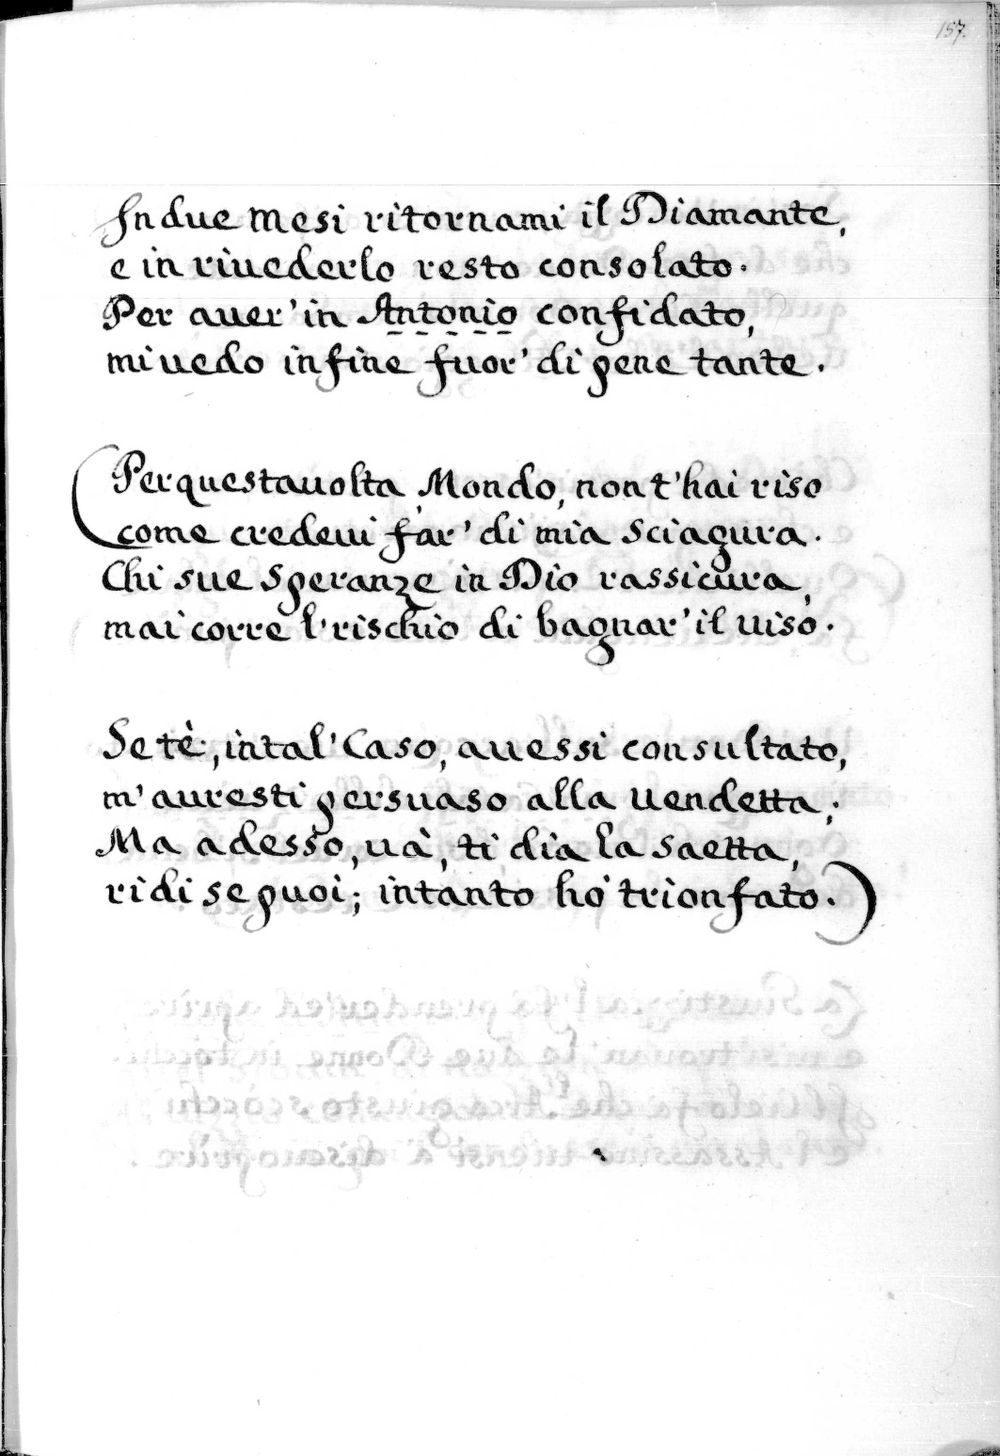 157.
In due mesi ritornami il Diamante,
e in riuederlo resto consolato.
Per auer' in Antonio confidato,
mi uedo in fine fuor' di pene tante.
(Per questa uolta, Mondo, non t'hai riso
come credeui far' di mia sciagura.
Chi sue speranze in Dio rassicura,
mai corre l'rischio di bagnar' il uiso.
Se tè, in tal' Caso, auessi consultato,
m'auresti persuaso alla uendetta;
Ma adesso, uà, ti dia la saetta,
ridi se puoi; intanto hò trionfato.)